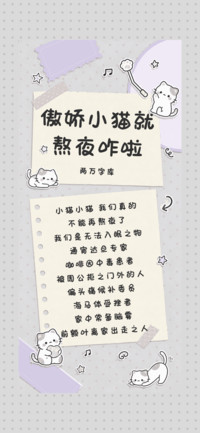 傲娇小猫就
熬夜咋啦
两万字库
小猫小猫 我们真的
不能再熬夜了
我们是无法入眠之物
通宵达旦专家
咖啡因中毒患者
被周公拒之门外的人
偏头痛候补委员
海马体受挫者
家中常备脑霄
前额叶离家出走之人